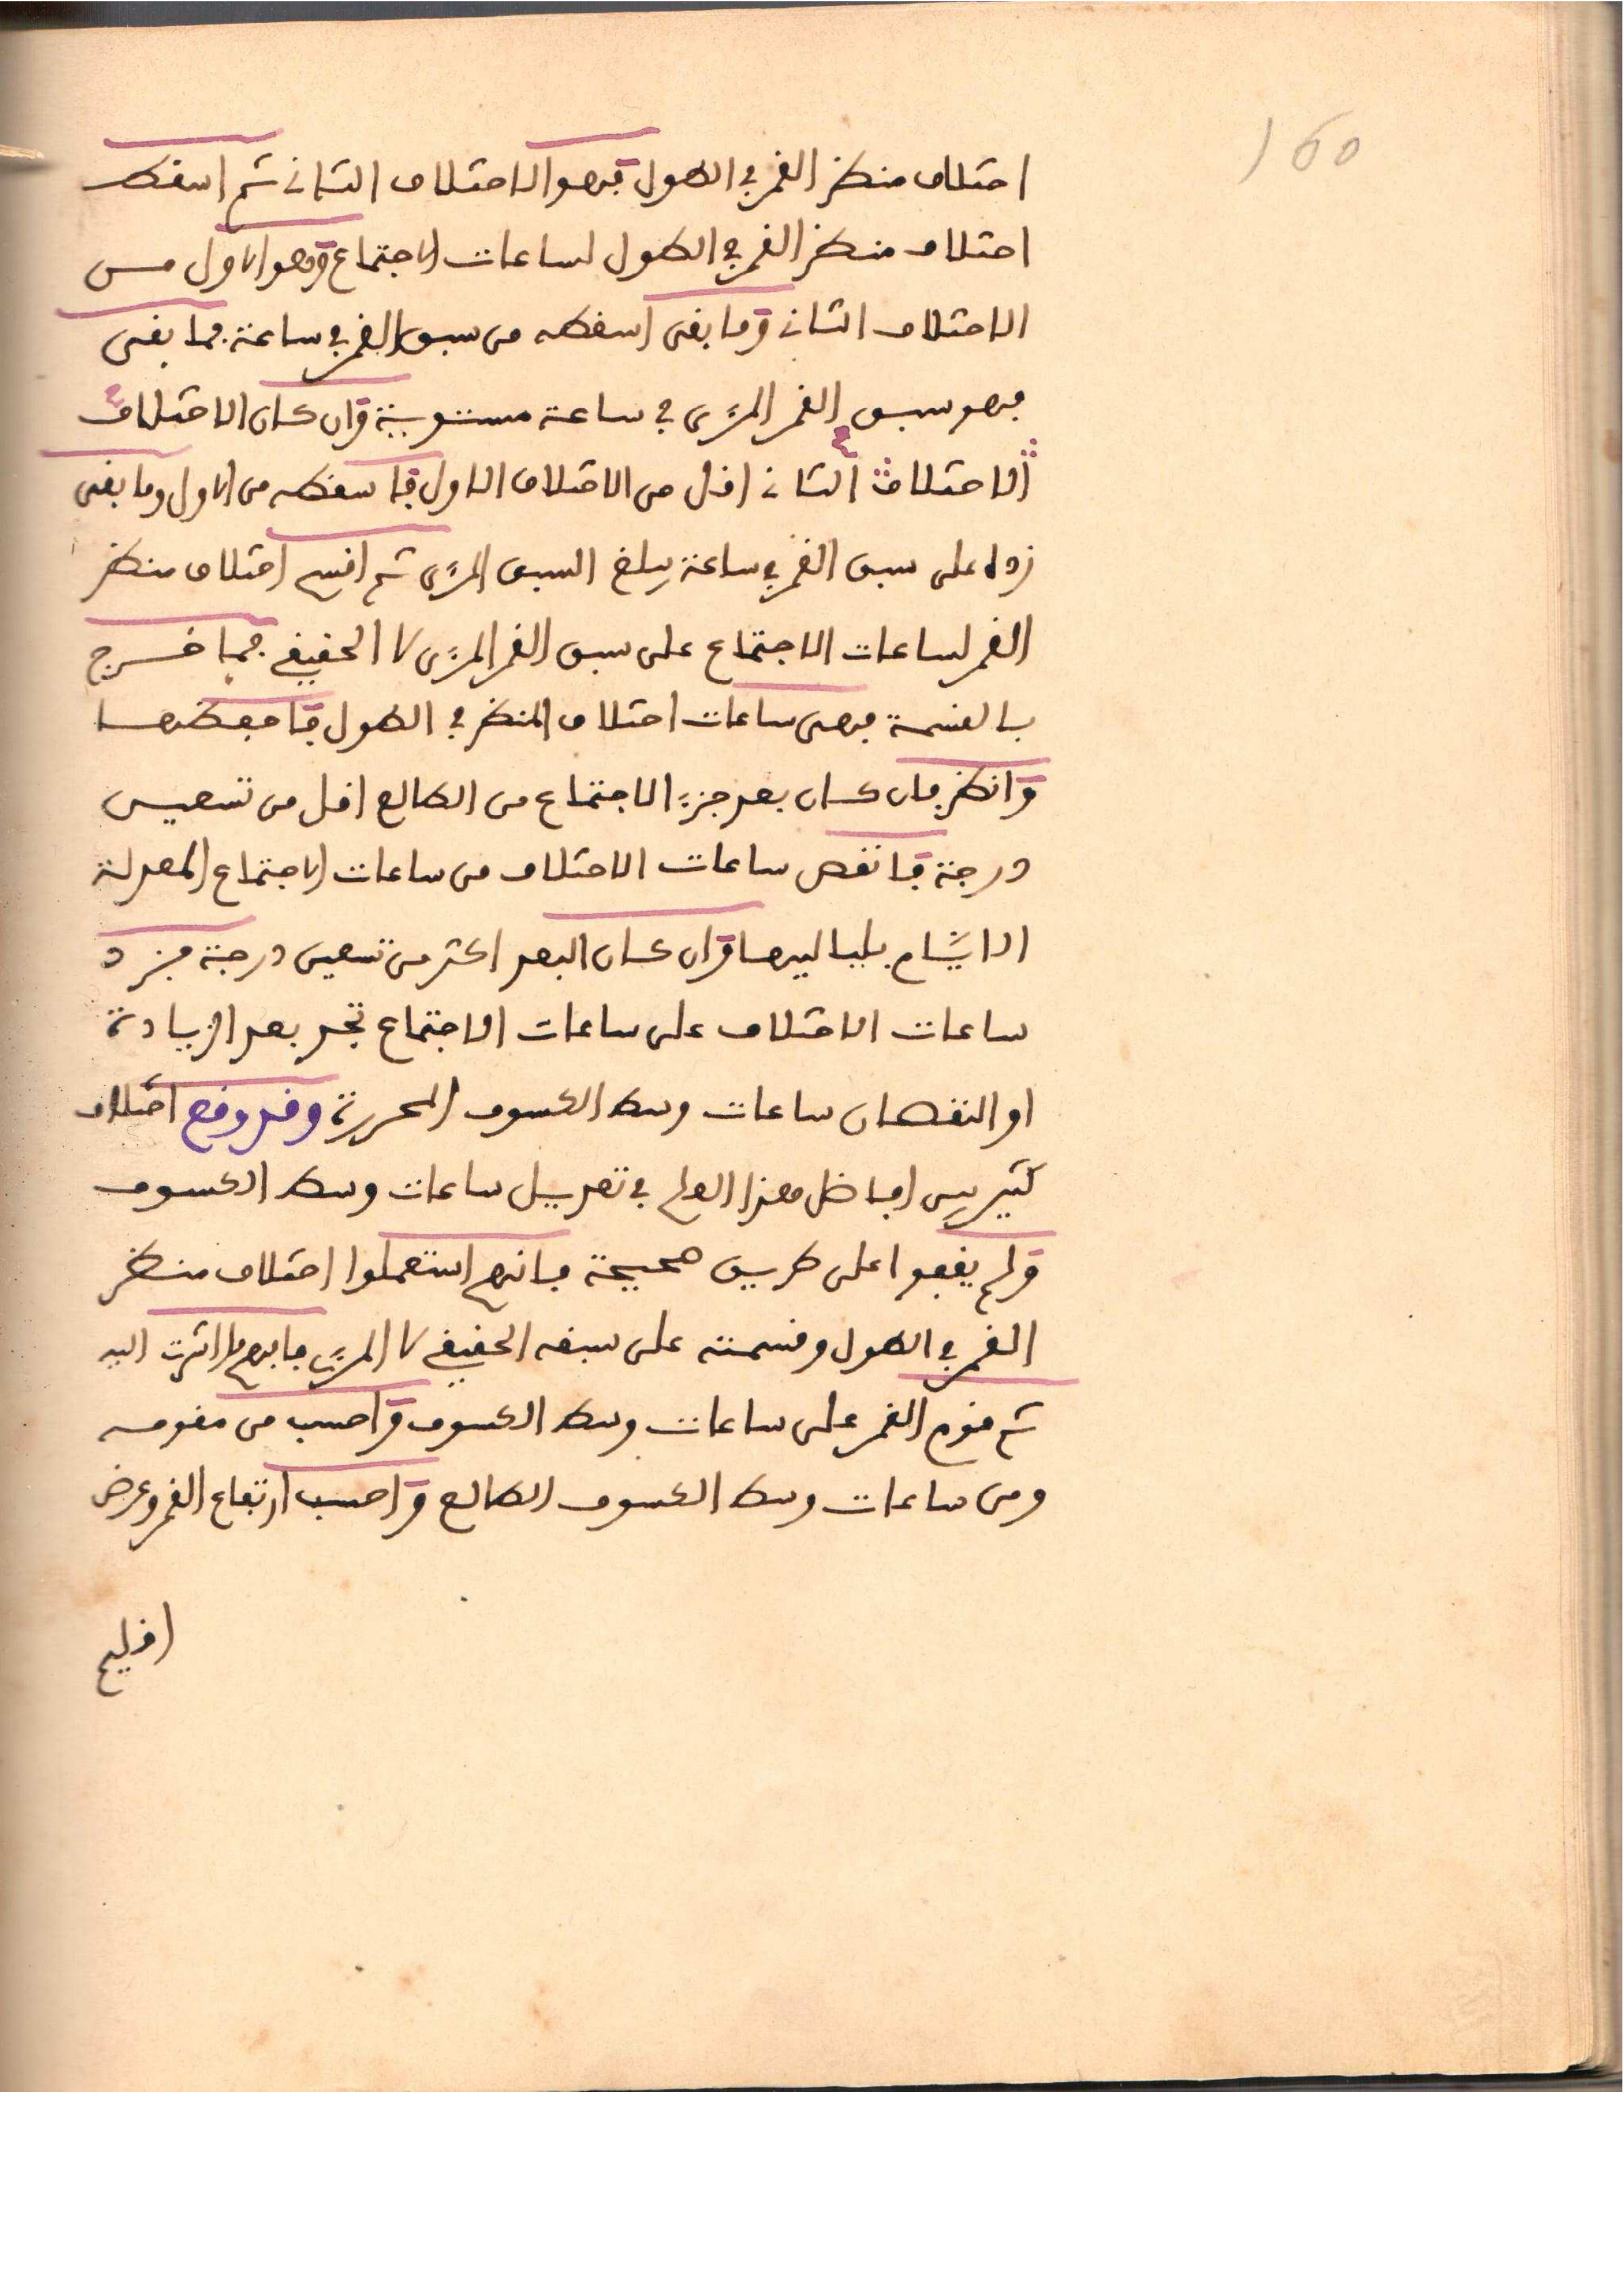 160
اختلاف منظر القمر في الطول فهو الاختلاف الثاني ثم اسقط
اختلاف منظر القمر في الطول لساعات الاجتماع وهو الاول من
الاختلاف الثاني وما بقى اسقطه من سبق القمر في ساعة فما بقى
فهو سبق القمر المرءى في ساعة مستوية وان كان الاختلاف
الاختلاف الثاني اقل من الاختلاف الاول فاسقطه من الاول وما بقى
زده على سبق القمر في ساعة يبلغ السبق المرءى ثم اقسم اختلاف منظر
القمر لساعات الاجتماع على سبق القمر المرءى لا الحقيقي فما خرج
بالقسمة فهى ساعات اختلاف المنظر في الطول فاحفظها
وانظر فان كان بعد جزء الاجتماع من الطالع اقل من تسعين
درجة فانقص ساعات الاختلاف من ساعات الاجتماع المعدلة
الايام بلياليها وان كان البعد اكثر من تسعين درجة فزد
ساعات الاختلاف على ساعات الاجتماع تجد بعد الزيادة
او النقصان ساعات وسط الكسوف المحررة وقد وقع اختلاف
كثير بين افاضل هذا العلم في تعديل ساعات وسط الكسوف
ولم يقفوا على طريق صحيحة فانهم استعملوا اختلاف منظر
القمر في الطول وقسمته على سبقه الحقيقي لا المرءي فافهم ما اشرت اليه
ثم قوم القمر على ساعات وسط الكسوف واحسب من مقومه
ومن ساعات وسط الكسوف الطالع واحسب ارتفاع القمر وعرض
اقليم